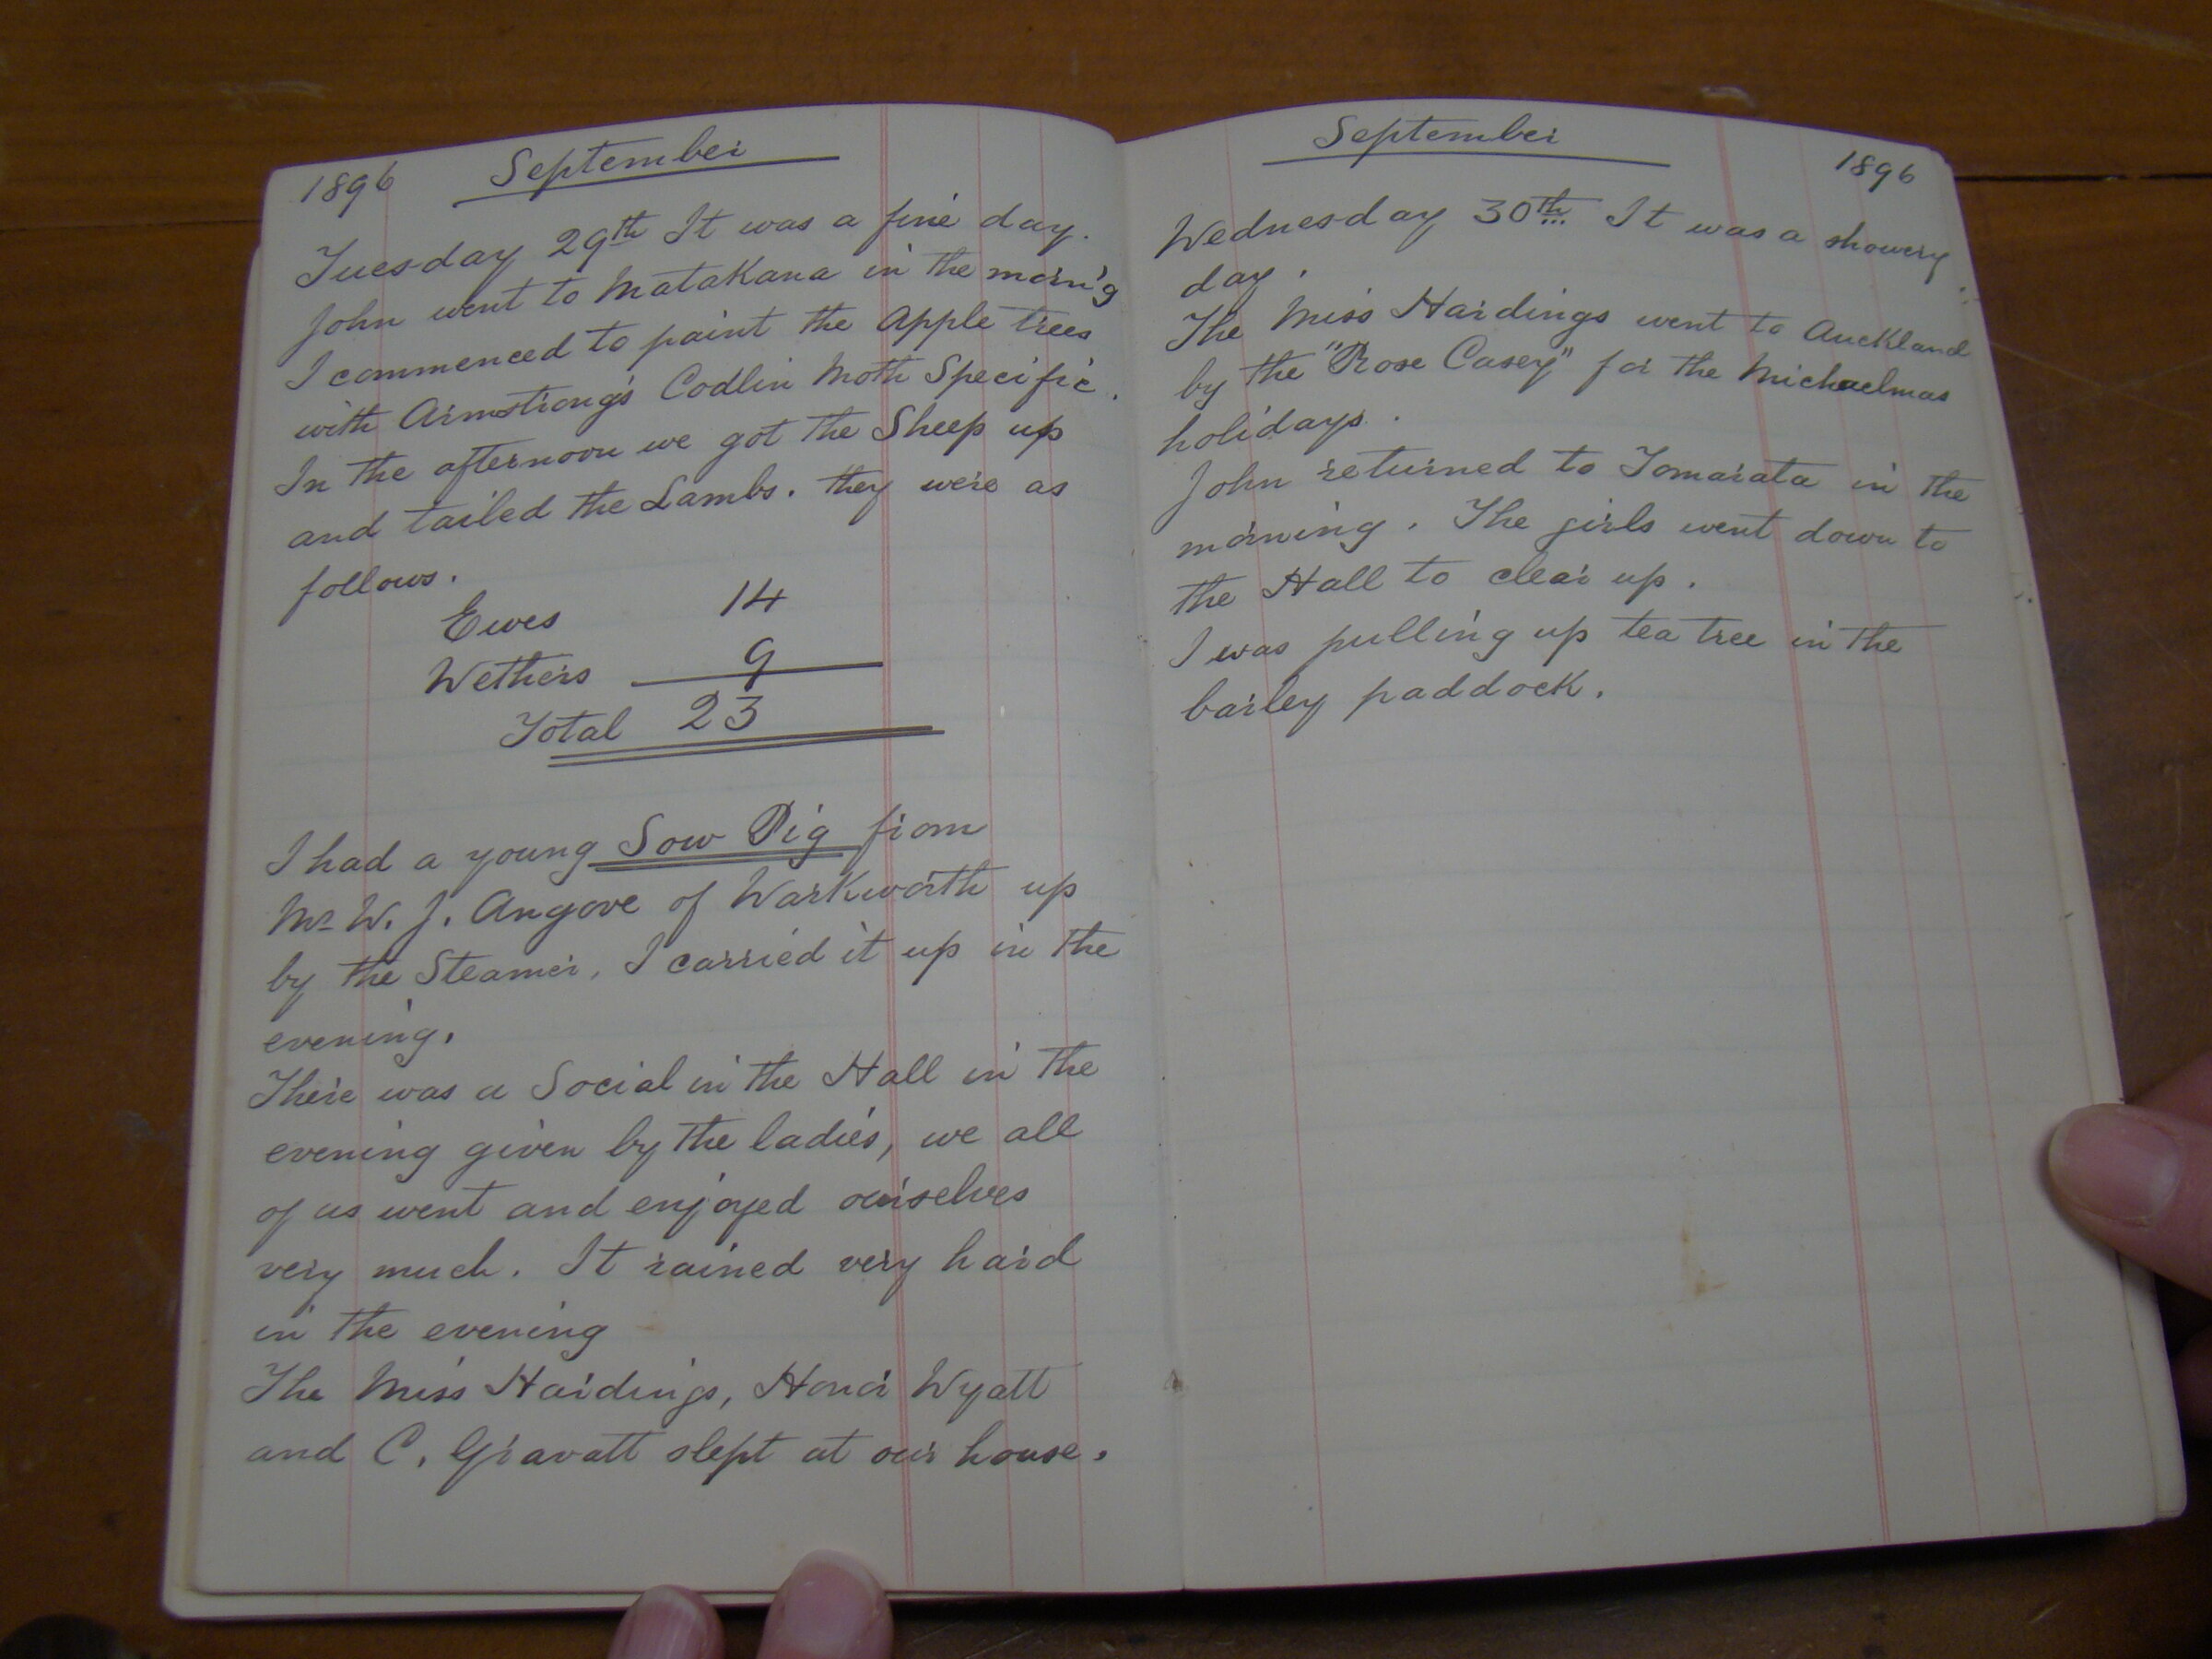 1896 September
Tuesday 29th It was a fine day.
John went to Matakana in the morn'g
I commenced to paint the Apple trees
with Armstrong's Codlin Moth Specific.
In the afternoon we got the Sheep up
and tailed the Lambs. they were as
follows.
Ewes 14
Wethers 9
Total 23
I had a young Sow Pig from
Mr W. J. Angove of Warkworth up
by the Steamer, I carried it up in the
evening.
There was a Social in the Hall in the
evening given by the ladies, we all
of us went and enjoyed ourselves
very much. It rained very hard
in the evening
The Miss Hardings, Honor Wyatt
and C. Gravatt slept at our house.
September 1896
Wednesday 30th It was a showery
day.
The Miss Hardings went to Auckland
by the "Rose Casey" for the Michaelmas
holidays.
John returned to Tomarata in the
morning. The girls went down to
the Hall to clear up.
I was pulling up tea tree in the
barley paddock.